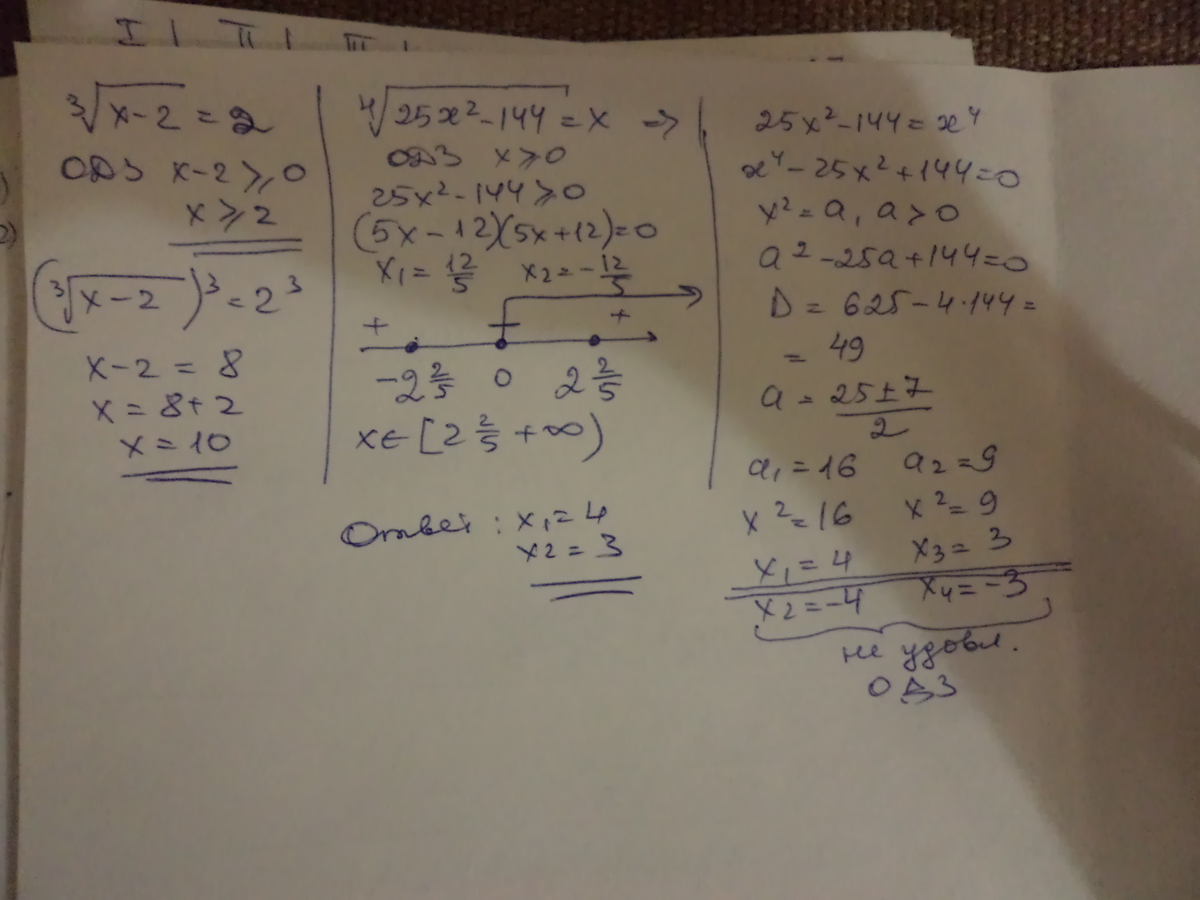 I | II | III |
∛(x-2) = 2
ОДЗ x-2 ⩾ 0
x ⩾ 2
(∛(x-2))³ = 2³
x-2 = 8
x = 8+2
x = 10
∜(25x²-144) = x ⇒
ОДЗ x ⩾ 0
25x²-144 ⩾ 0
(5x-12)(5x+12)=0
x₁ = 12/5 x₂ = -12/5
+ − +
-2 2/5 0 2 2/5
x ∈ [2 2/5 +∞)
Ответ: x₁ = 4
x₂ = 3
25x²-144 = x⁴
x⁴-25x²+144=0
x² = a, a > 0
a²-25a+144=0
D = 625-4·144=
= 49
a = (25±7)/2
a₁ = 16 a₂ = 9
x² = 16 x² = 9
x₁ = 4 x₃ = 3
x₂ = -4 x₄ = -3
не удовл.
ОДЗ